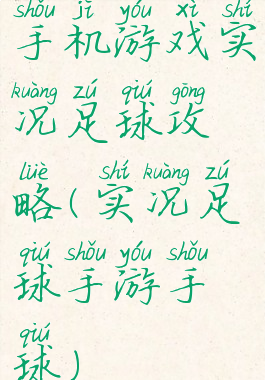 shǒu jī yóu xì shí
手机游戏实
kuàng zú qiú gōng
况足球攻
lüè shí kuàng zú
略(实况足
qiú shǒu yóu shǒu
球手游手
qiú
球)